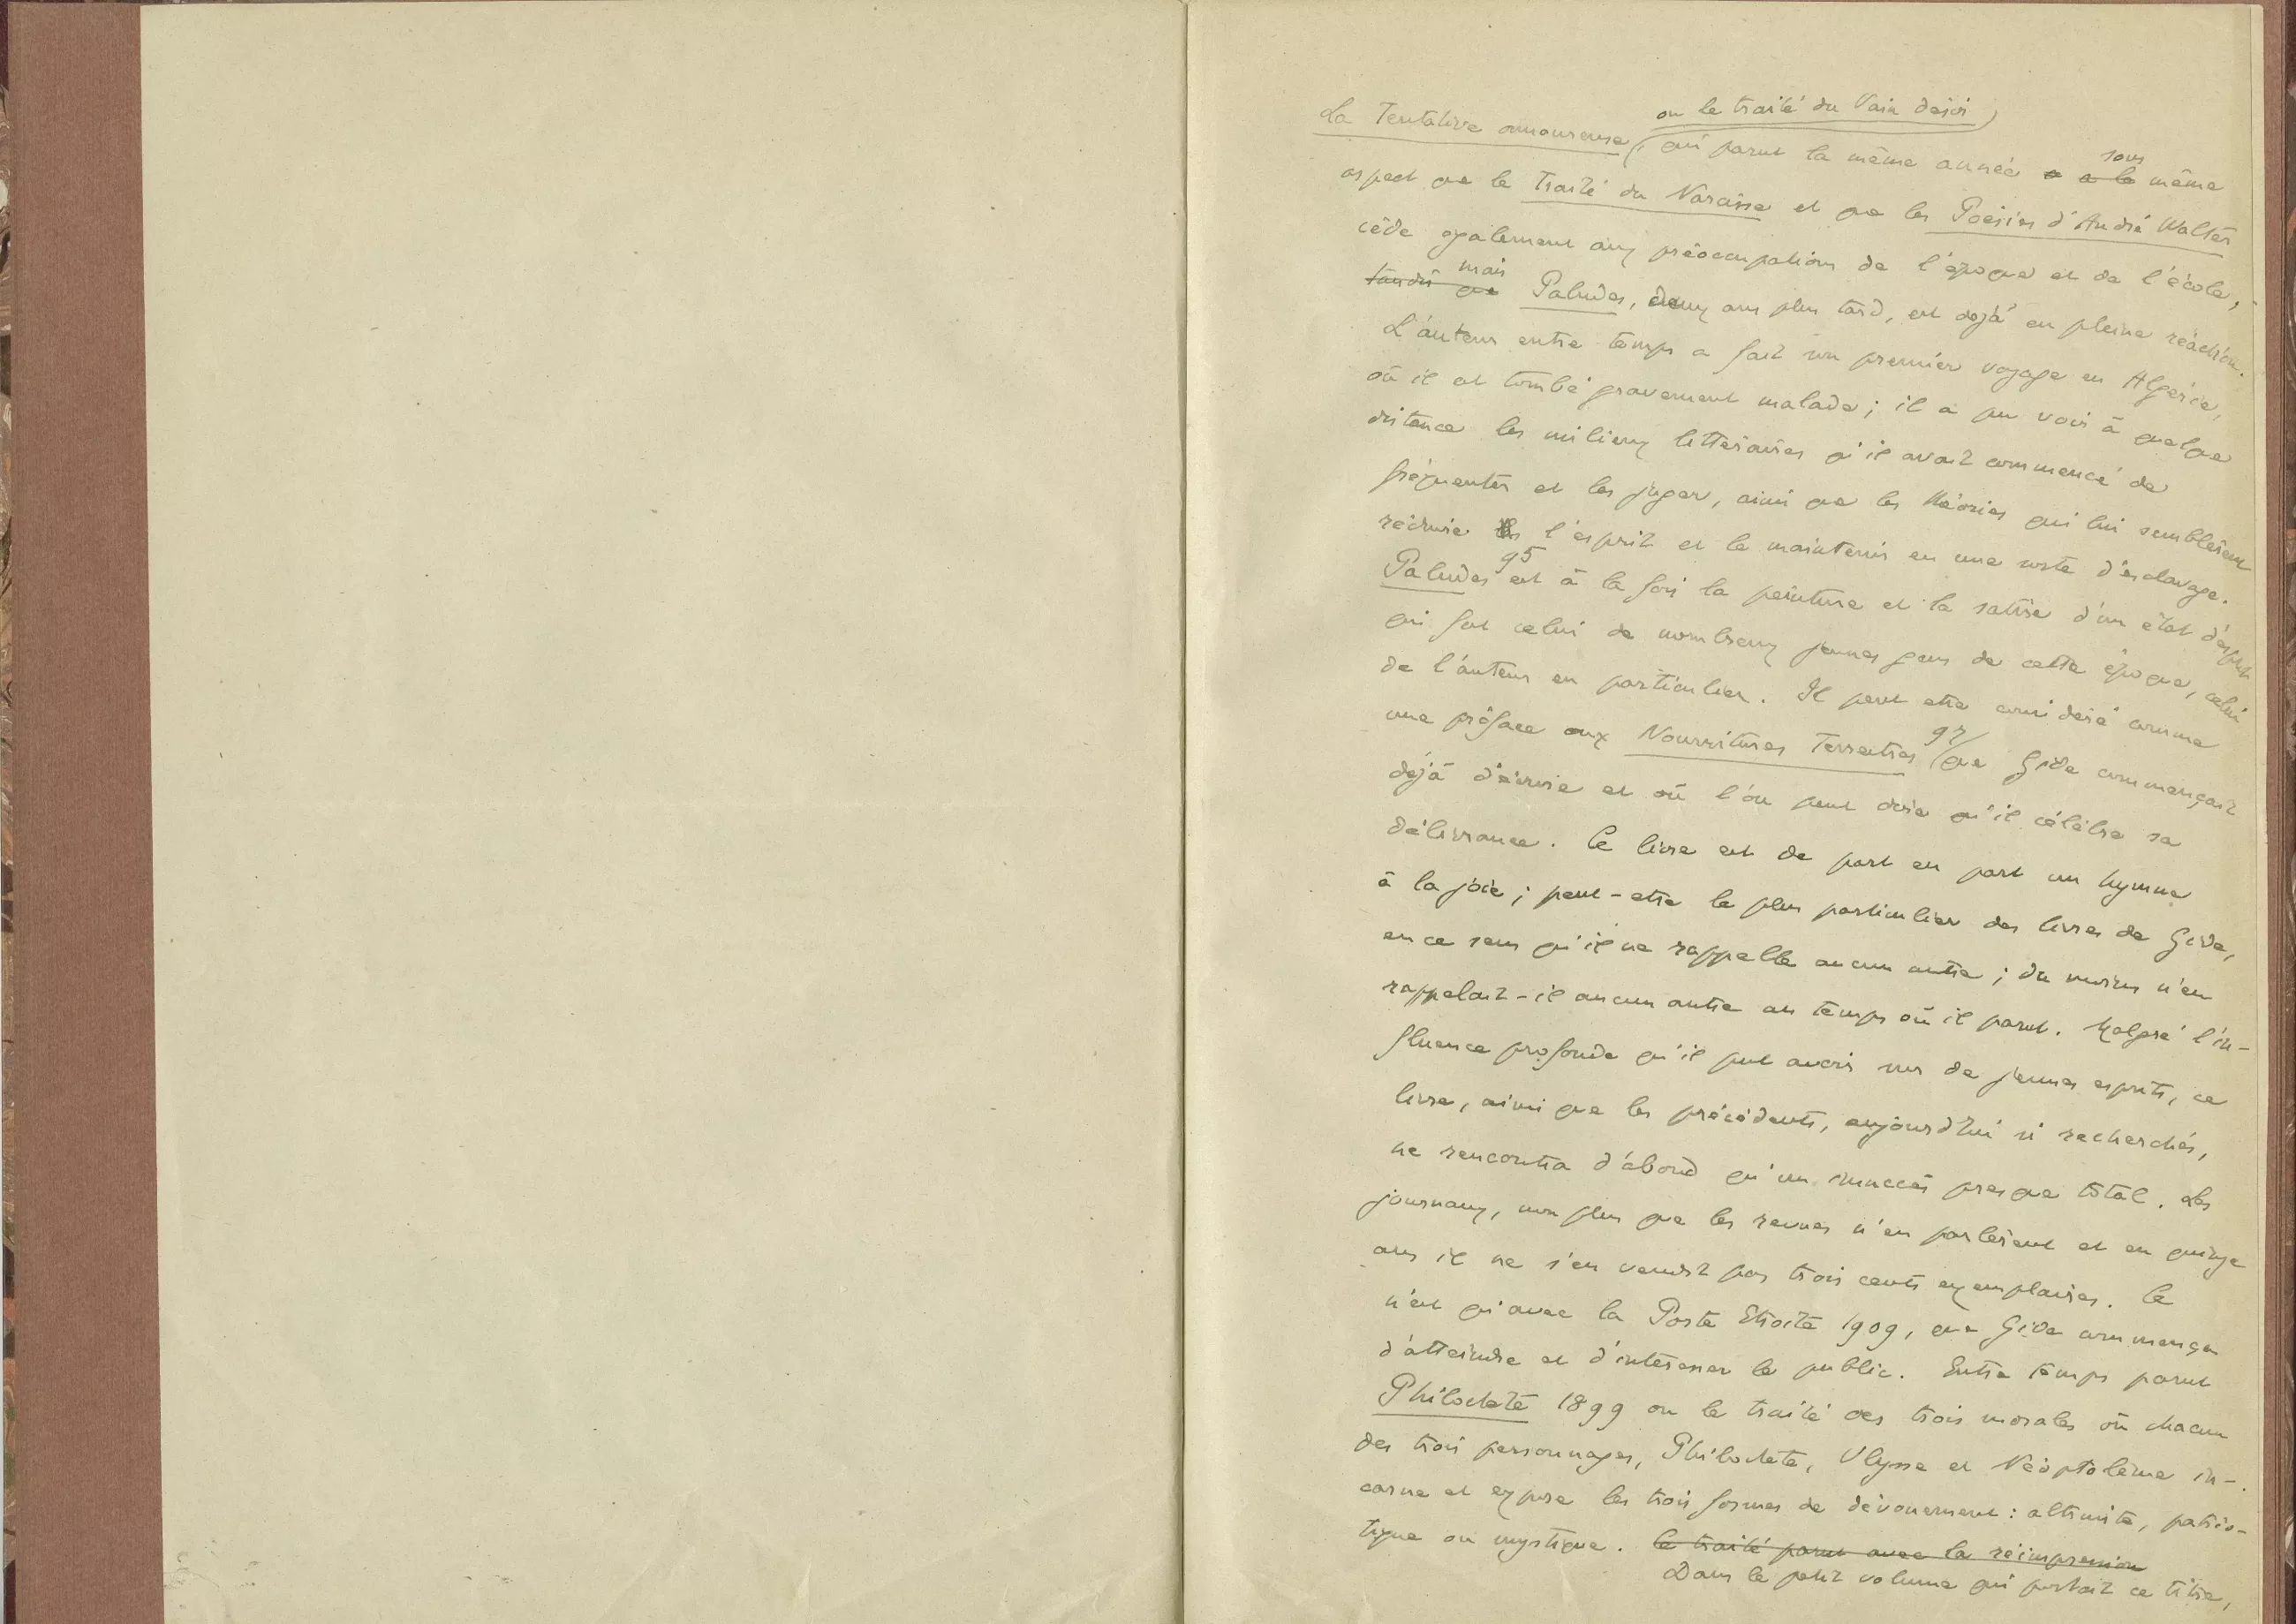 ou le traité du Vain désir)
La Tentative amoureuse (, qui parut la même année a a le sous même
aspect que le Traité du Narcisse et que les Poésies d'André Walter
cède également aux préoccupations de l'époque et de l'école;
tandis que mais Paludes, deux ans plus tard, est déjà en pleine réaction.
L'auteur entre temps a fait un premier voyage en Algérie,
où il est tombé gravement malade; il a pu voir à quelque
distance les milieux littéraires qu'il avait commencé de
fréquenter et les juger, ainsi que les théories qui lui semblèrent
réduire l'esprit et le maintenir en une sorte d'esclavage.
Paludes 95 est à la fois la peinture et la satire d'un état d'esprit
qui fut celui de nombreux jeunes gens de cette époque, celui
de l'auteur en particulier. Il peut etre considéré comme
une préface aux Nourritures Terrestres 97 (que Gide commençait
déjà d'écrire et où l'on peut dire qu'il célèbre sa
délivrance. Ce livre est de part en part un hymne
à la joie; peut-etre le plus particulier des livres de Gide,
en ce sens qu'il ne rappelle aucun autre; du moins n'en
rappelait-il aucun autre au temps où il parut. Malgré l'in-
fluence profonde qu'il put avoir sur de jeunes esprits, ce
livre, ainsi que les précédents, aujourd'hui si recherchés,
ne rencontra d'abord qu'un insuccès presque total. Les
journaux, non plus que les revues n'en parlèrent et en quinze
ans il ne s'en vendit pas trois cents exemplaires. Ce
n'est qu'avec la Porte Etroite 1909, que Gide commença
d'atteindre et d'intéresser le public. Entre temps parut
Philoctete 1899 ou le traité des trois morales où chacun
des trois personnages, Philoctete, Ulysse et Néoptolème in-
carne et expose les trois formes de dévouement: altruiste, patrio-
tique ou mystique. le traité parut avec la réimpression
Dans le petit volume qui portait ce titre,